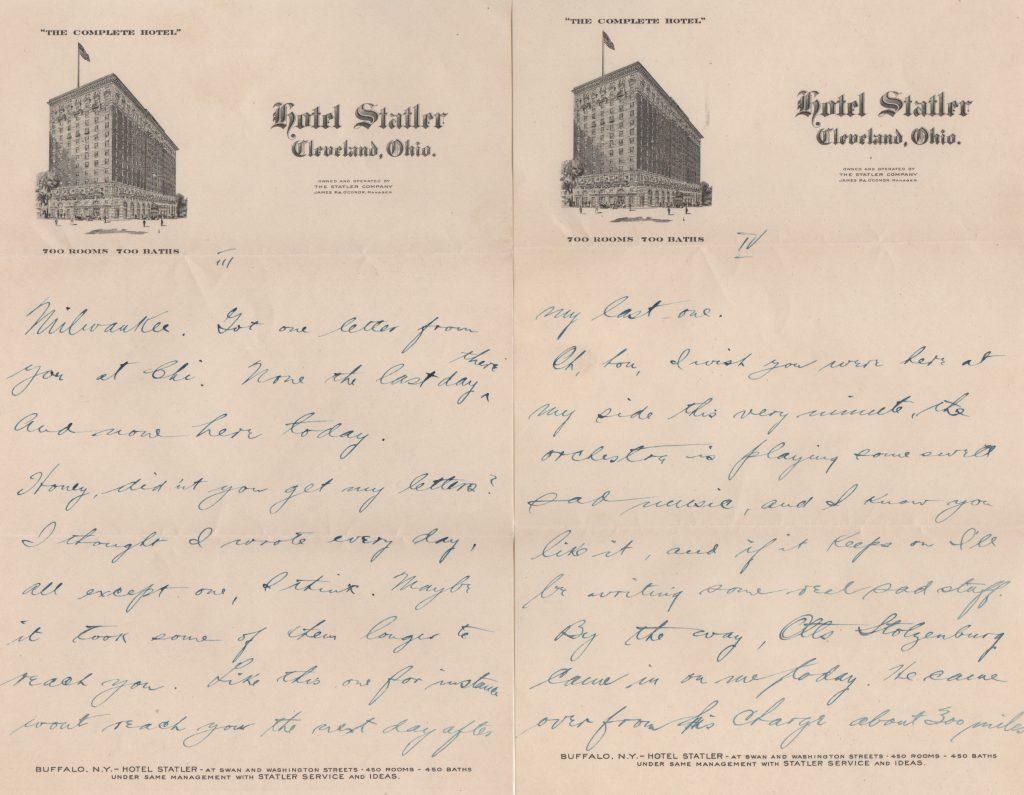 "THE COMPLETE HOTEL"
Hotel Statler
Cleveland, Ohio.
OWNED AND OPERATED BY
THE STATLER COMPANY
JAMES
MANAGER
700 ROOMS 700 BATHS
III
Milwaukee. Got one letter from
you at Chi. None the last day there
And none here today.
Honey, did'nt you get my letters?
I thought I wrote every day,
all except one, I think. Maybe
it took some of them longer to
reach you. Like this one for instance
wont reach you the next day after
BUFFALO, N.Y.– HOTEL STATLER - AT SWAN AND WASHINGTON STREETS - 450 ROOMS - 450 BATHS
UNDER SAME MANAGEMENT WITH STATLER SERVICE AND IDEAS.
"THE COMPLETE HOTEL"
Hotel Statler
Cleveland, Ohio.
OWNED AND OPERATED BY
THE STATLER COMPANY
JAMES
MANAGER
700 ROOMS 700 BATHS
IV
my last one.
Oh, hon, I wish you were here at
my side this very minute, the
orchestra is playing some swell
sad music, and I know you
like it, and if it keeps on I'll
be writing some real sad stuff.
By the way, Otts Stolzenburg
came in on me today. He came
over from his charge about 300 miles
BUFFALO, N.Y.– HOTEL STATLER - AT SWAN AND WASHINGTON STREETS - 450 ROOMS - 450 BATHS
UNDER SAME MANAGEMENT WITH STATLER SERVICE AND IDEAS.